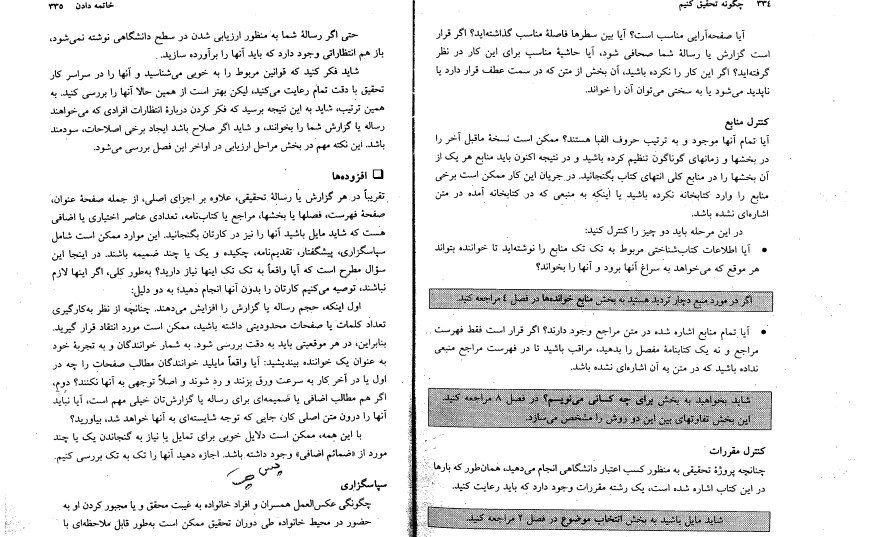 ۳۳۴ چگونه تحقیق کنیم
آیا صفحه‌آرایی مناسب است؟ آیا بین سطرها فاصلهٔ مناسب گذاشته‌اید؟ اگر قرار
است گزارش یا رسالهٔ شما صحافی شود، آیا حاشیهٔ مناسب برای این کار در نظر
گرفته‌اید؟ اگر این کار را نکرده باشید، آن بخش از متن که در سمت عطف قرار دارد یا
ناپدید می‌شود یا به سختی می‌توان آن را خواند.
کنترل منابع
آیا تمام آنها موجود و به ترتیب حروف الفبا هستند؟ ممکن است نسخهٔ ماقبل آخر را
در بخشها و زمانهای گوناگون تنظیم کرده باشید و در نتیجه اکنون باید منابع هر یک از
آن بخشها را در منابع کلی انتهای کتاب بگنجانید. در جریان این کار ممکن است برخی
منابع را وارد کتابخانه نکرده باشید یا اینکه به منبعی که در کتابخانه آمده در متن
اشاره‌ای نشده باشد.
در این مرحله باید دو چیز را کنترل کنید:
• آیا اطلاعات کتاب‌شناختی مربوط به تک تک منابع را نوشته‌اید تا خواننده بتواند
هر موقع که می‌خواهد به سراغ آنها برود و آنها را بخواند؟
اگر در مورد منبع دچار تردید هستید به بخش منابع خوانده‌ها در فصل ۴ مراجعه کنید.
• آیا تمام منابع اشاره شده در متن مراجع وجود دارند؟ اگر قرار است فقط فهرست
مراجع و نه یک کتابنامهٔ مفصل را بدهید، مراقب باشید تا در فهرست مراجع منبعی
نداده باشید که در متن به آن اشاره‌ای نشده باشد.
شاید بخواهید به بخش برای چه کسانی می‌نویسم؟ در فصل ۸ مراجعه کنید.
این بخش تفاوتهای بین این دو روش را مشخص می‌سازد.
کنترل مقررات
چنانچه پروژهٔ تحقیقی به منظور کسب اعتبار دانشگاهی انجام می‌دهید، همان‌طور که بارها
در این کتاب اشاره شده است، یک رشته مقررات وجود دارد که باید رعایت کنید.
شاید مایل باشید به بخش انتخاب موضوع در فصل ۲ مراجعه کنید.
خاتمه دادن ۳۳۵
حتی اگر رسالهٔ شما به منظور ارزیابی شدن در سطح دانشگاهی نوشته نمی‌شود،
باز هم انتظاراتی وجود دارد که باید آنها را برآورده سازید.
شاید فکر کنید که قوانین مربوط را به خوبی می‌شناسید و آنها را در سراسر کار
تحقیق با دقت تمام رعایت می‌کنید، لیکن بهتر است از همین حالا آنها را بررسی کنید. به
همین ترتیب، شاید به این نتیجه برسید که فکر کردن دربارهٔ انتظارات افرادی که می‌خواهند
رساله یا گزارش شما را بخوانند، و شاید اگر صلاح باشد ایجاد برخی اصلاحات، سودمند
باشد. این نکته مهم در بخش مراحل ارزیابی در اواخر این فصل بررسی می‌شود.
❏ افزوده‌ها
تقریباً در هر گزارش یا رسالهٔ تحقیقی، علاوه بر اجزای اصلی، از جمله صفحهٔ عنوان،
صفحهٔ فهرست، فصلها یا بخشها، مراجع یا کتاب‌نامه، تعدادی عناصر اختیاری یا اضافی
هست که شاید مایل باشید آنها را نیز در کارتان بگنجانید. این موارد ممکن است شامل
سپاسگزاری، پیشگفتار، تقدیم‌نامه، چکیده و یک یا چند ضمیمه باشند. در اینجا این
سؤال مطرح است که آیا واقعاً به تک تک اینها نیاز دارید؟ به‌طور کلی، اگر اینها لازم
نباشند، توصیه می‌کنیم کارتان را بدون آنها انجام دهید؛ به دو دلیل:
اول اینکه، حجم رساله یا گزارش را افزایش می‌دهند. چنانچه از نظر به‌کارگیری
تعداد کلمات یا صفحات محدودیتی داشته باشید، ممکن است مورد انتقاد قرار گیرید.
بنابراین، در هر موقعیتی باید به دقت بررسی شود. به شمار خوانندگان و به تجربهٔ خود
به عنوان یک خواننده بیندیشید: آیا واقعاً مایلید خوانندگان مطالب صفحات را چه در
اول یا در آخر کار به سرعت ورق بزنند و رد شوند و اصلاً توجهی به آنها نکنند؟ دوم،
اگر هم مطالب اضافی یا ضمیمه‌ای برای رساله یا گزارش‌تان خیلی مهم است، آیا نباید
آنها را درون متن اصلی کار، جایی که توجه شایسته‌ای به آنها خواهد شد، بیاورید؟
با این همه، ممکن است دلایل خوبی برای تمایل یا نیاز به گنجاندن یک یا چند
مورد از «ضمائم اضافی» وجود داشته باشد. اجازه دهید آنها را تک به تک بررسی کنیم.
سپاسگزاری
چگونگی عکس‌العمل همسران و افراد خانواده به غیبت محقق و یا مجبور کردن او به
حضور در محیط خانواده طی دوران تحقیق ممکن است به‌طور قابل ملاحظه‌ای با